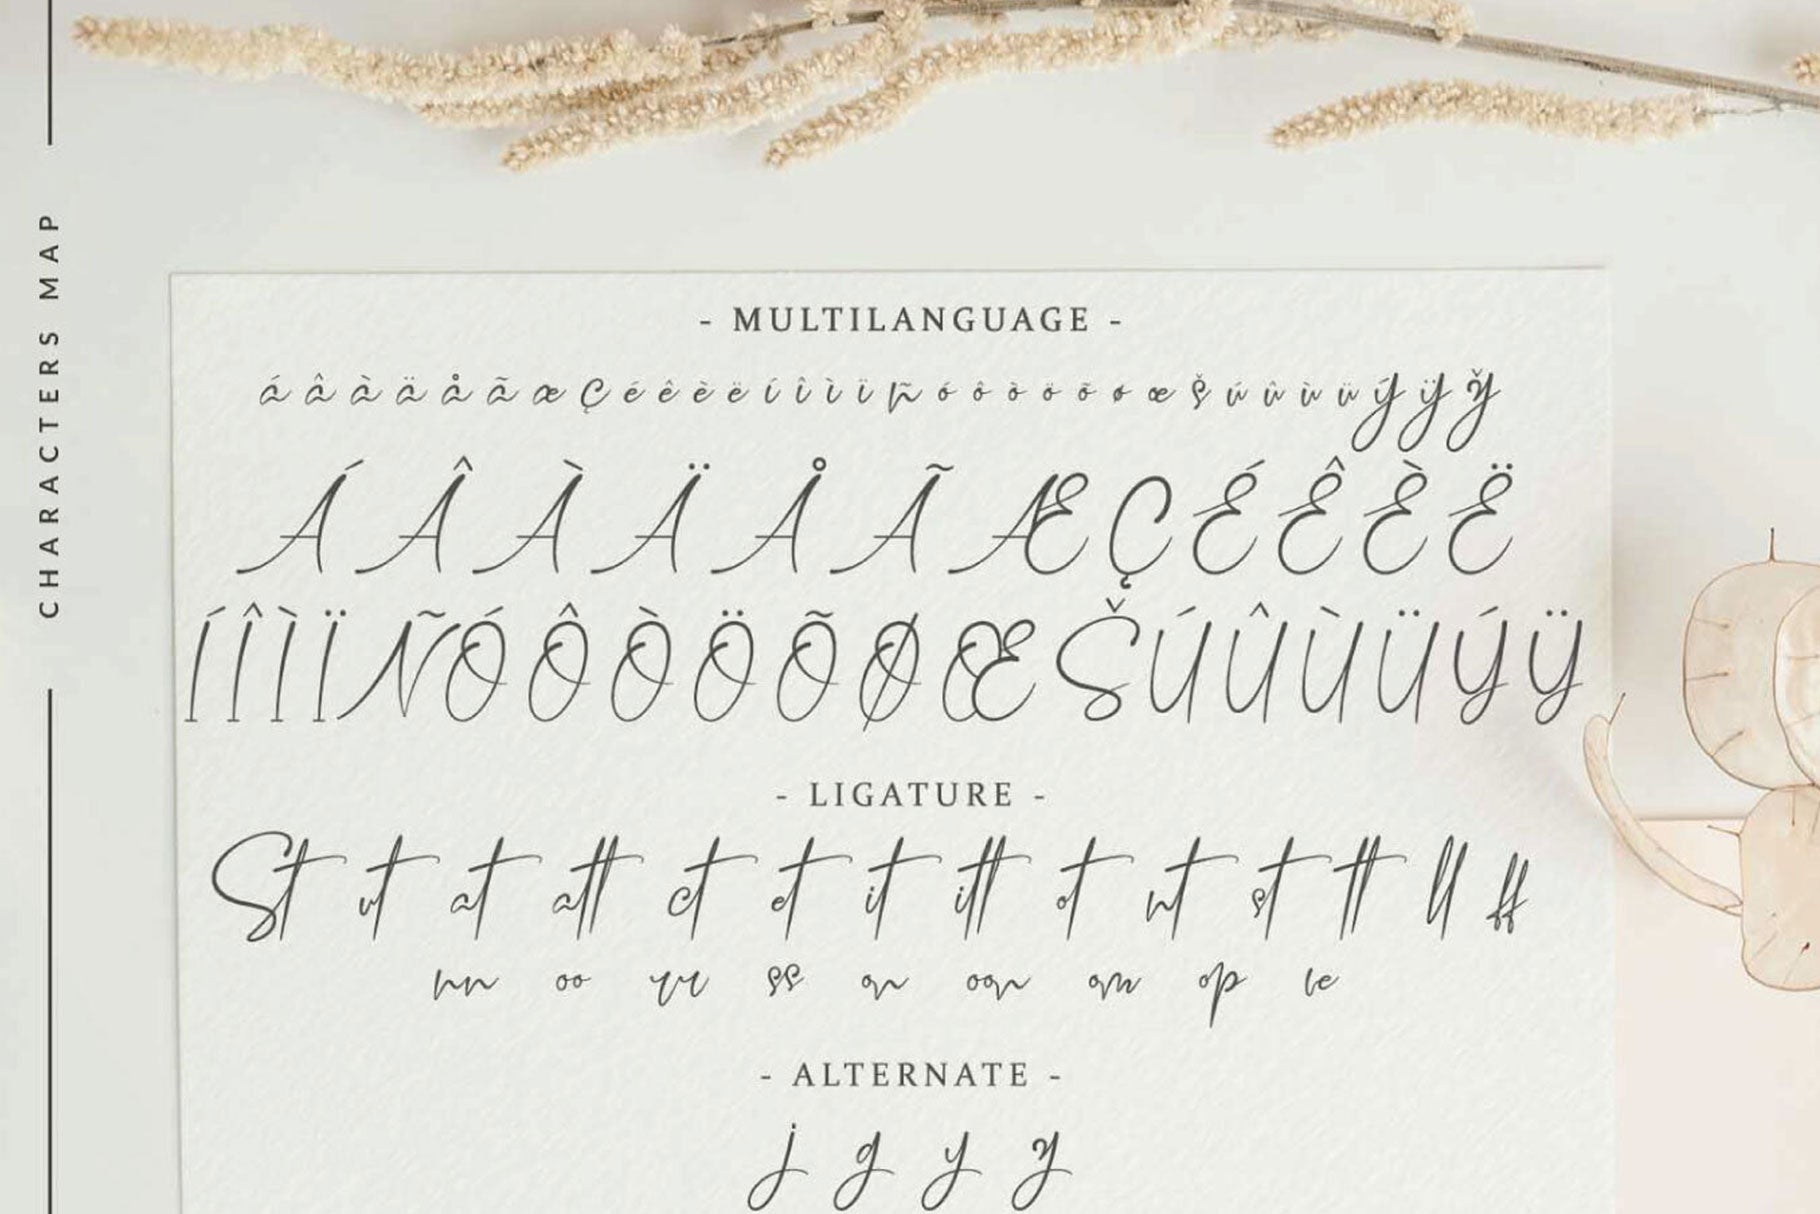 CHARACTERS MAP
- MULTILANGUAGE -
á â à ä å ã æ ç é ê è ë í î ì ï ñ ó ô ò ö õ ø œ š ú û ù ü ý ÿ ž
Á Â À Ä Å Ã Æ Ç É Ê È Ë
Í Î Ì Ï Ñ Ó Ô Ò Ö Õ Ø Œ Š Ú Û Ù Ü Ý Ÿ
- LIGATURE -
St ut at att ct et it itt ot nt st tt ll ff
nn oo rr ss on oon om op re
- ALTERNATE -
j g y z